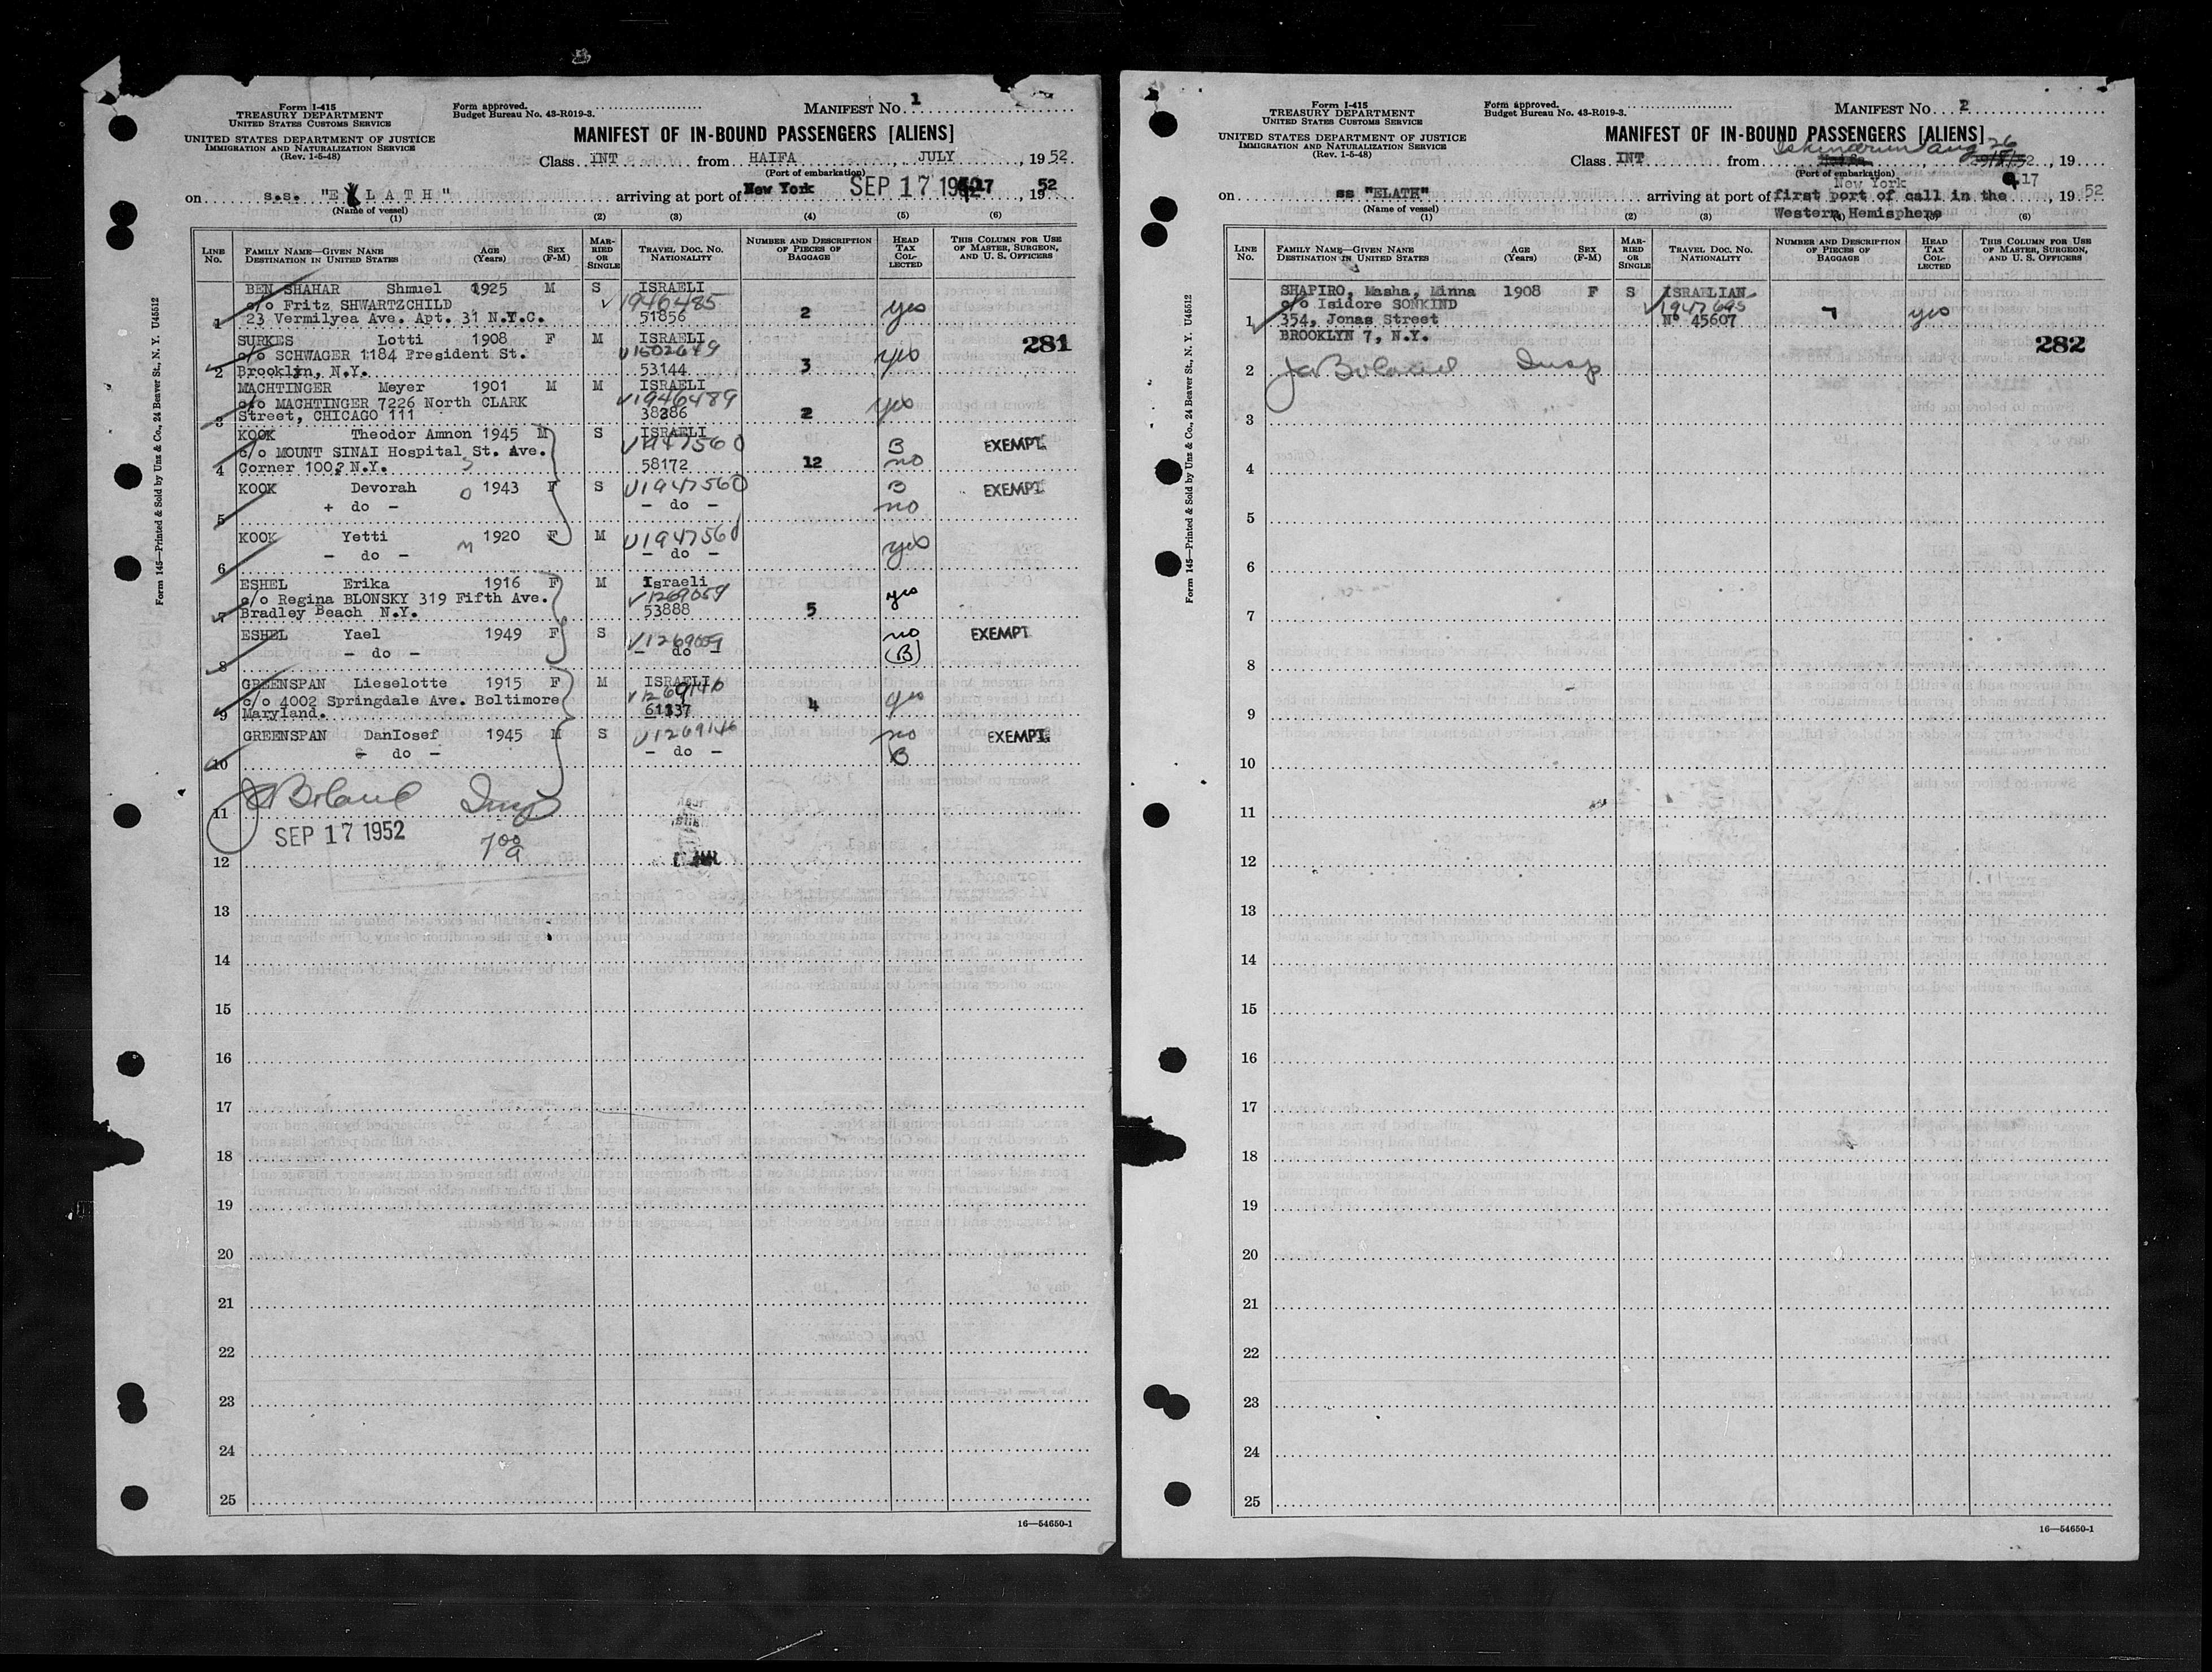 Form I-415
TREASURY DEPARTMENT
UNITED STATES CUSTOMS SERVICE
UNITED STATES DEPARTMENT OF JUSTICE
IMMIGRATION AND NATURALIZATION SERVICE
(Rev. 1-5-48)
Form approved.
Budget Bureau No. 43-R019-3.
MANIFEST NO. 1
MANIFEST OF IN-BOUND PASSENGERS [ALIENS]
Class INT from HAIFA, JULY, 1952
(Port of embarkation)
on s.s. "E L A T H" arriving at port of New York SEP 17 1952 17, 1952
(Name of vessel)
(1) (2) (3) (4) (5) (6)
LINE No. FAMILY NAME—GIVEN NAME DESTINATION IN UNITED STATES AGE (Years) SEX (F-M) MARRIED OR SINGLE TRAVEL DOC. NO. NATIONALITY NUMBER AND DESCRIPTION OF PIECES OF BAGGAGE HEAD TAX COLLECTED THIS COLUMN FOR USE OF MASTER, SURGEON, AND U. S. OFFICERS
BEN SHAHAR Shmuel 1925 M S ISRAELI
c/o Fritz SHWARTZCHILD V1946485
1 23 Vermilyea Ave. Apt. 31 N.Y.C. 51856 2 yes
SURKES Lotti 1908 F M ISRAELI 281
c/o SCHWAGER 1184 President St. V1502649 yes
2 Brooklin, N.Y. 53144 3
MACHTINGER Meyer 1901 M M ISRAELI
c/o MACHTINGER 7226 North CLARK V1946489 yes
3 Street, CHICAGO 111 38386 2
KOOK Theodor Amnon 1945 M S ISRAELI
c/o MOUNT SINAI Hospital St. Ave. V1947560 B EXEMPT.
4 Corner 100, N.Y. S 58172 12 no
KOOK Devorah D 1943 F S V1947560 B EXEMPT.
+ do - - do - no
5
KOOK Yetti M 1920 F M V1947560
- do - - do - yes
6
ESHEL Erika 1916 F M Israeli
c/o Regina BLONSKY 319 Fifth Ave. V1269059 yes
7 Bradley Beach N.Y. 53888 5
ESHEL Yael 1949 F S V1269059 no EXEMPT
- do - - do - (B)
8
GREENSPAN Lieselotte 1915 F M ISRAELI
c/o 4002 Springdale Ave. Boltimore V1269146 yes
9 Maryland. 61337 4
GREENSPAN DanIosef 1945 M S V1269146 no EXEMPT.
- do - - do - B
10
J Boland Insp
11
SEP 17 1952 7 00 a
12
13
14
15
16
17
18
19
20
21
22
23
24
25
16—54650-1
Form 145—Printed & Sold by Unz & Co., 24 Beaver St., N. Y. U45512
Form I-415
TREASURY DEPARTMENT
UNITED STATES CUSTOMS SERVICE
UNITED STATES DEPARTMENT OF JUSTICE
IMMIGRATION AND NATURALIZATION SERVICE
(Rev. 1-5-48)
Form approved.
Budget Bureau No. 43-R019-3.
MANIFEST NO. 2
MANIFEST OF IN-BOUND PASSENGERS [ALIENS]
Iskenderun Aug 26
Class INT from Haifa, 19
(Port of embarkation)
New York 9 17
on ss "ELATH" arriving at port of first port of call in the, 1952
(Name of vessel) Western Hemisphere
(1) (2) (3) (6)
LINE No. FAMILY NAME—GIVEN NAME DESTINATION IN UNITED STATES AGE (Years) SEX (F-M) MARRIED OR SINGLE TRAVEL DOC. NO. NATIONALITY NUMBER AND DESCRIPTION OF PIECES OF BAGGAGE HEAD TAX COLLECTED THIS COLUMN FOR USE OF MASTER, SURGEON, AND U. S. OFFICERS
SHAPIRO, Masha, Minna 1908 F S ISRAELIAN
c/o Isidore SONKIND V1947695
1 354, Jonas Street Nº 45607 7 yes
BROOKLYN 7, N.Y. 282
2 J Boland Insp
3
4
5
6
7
8
9
10
11
12
13
14
15
16
17
18
19
20
21
22
23
24
25
16—54650-1
Form 145—Printed & Sold by Unz & Co., 24 Beaver St., N. Y. U45512